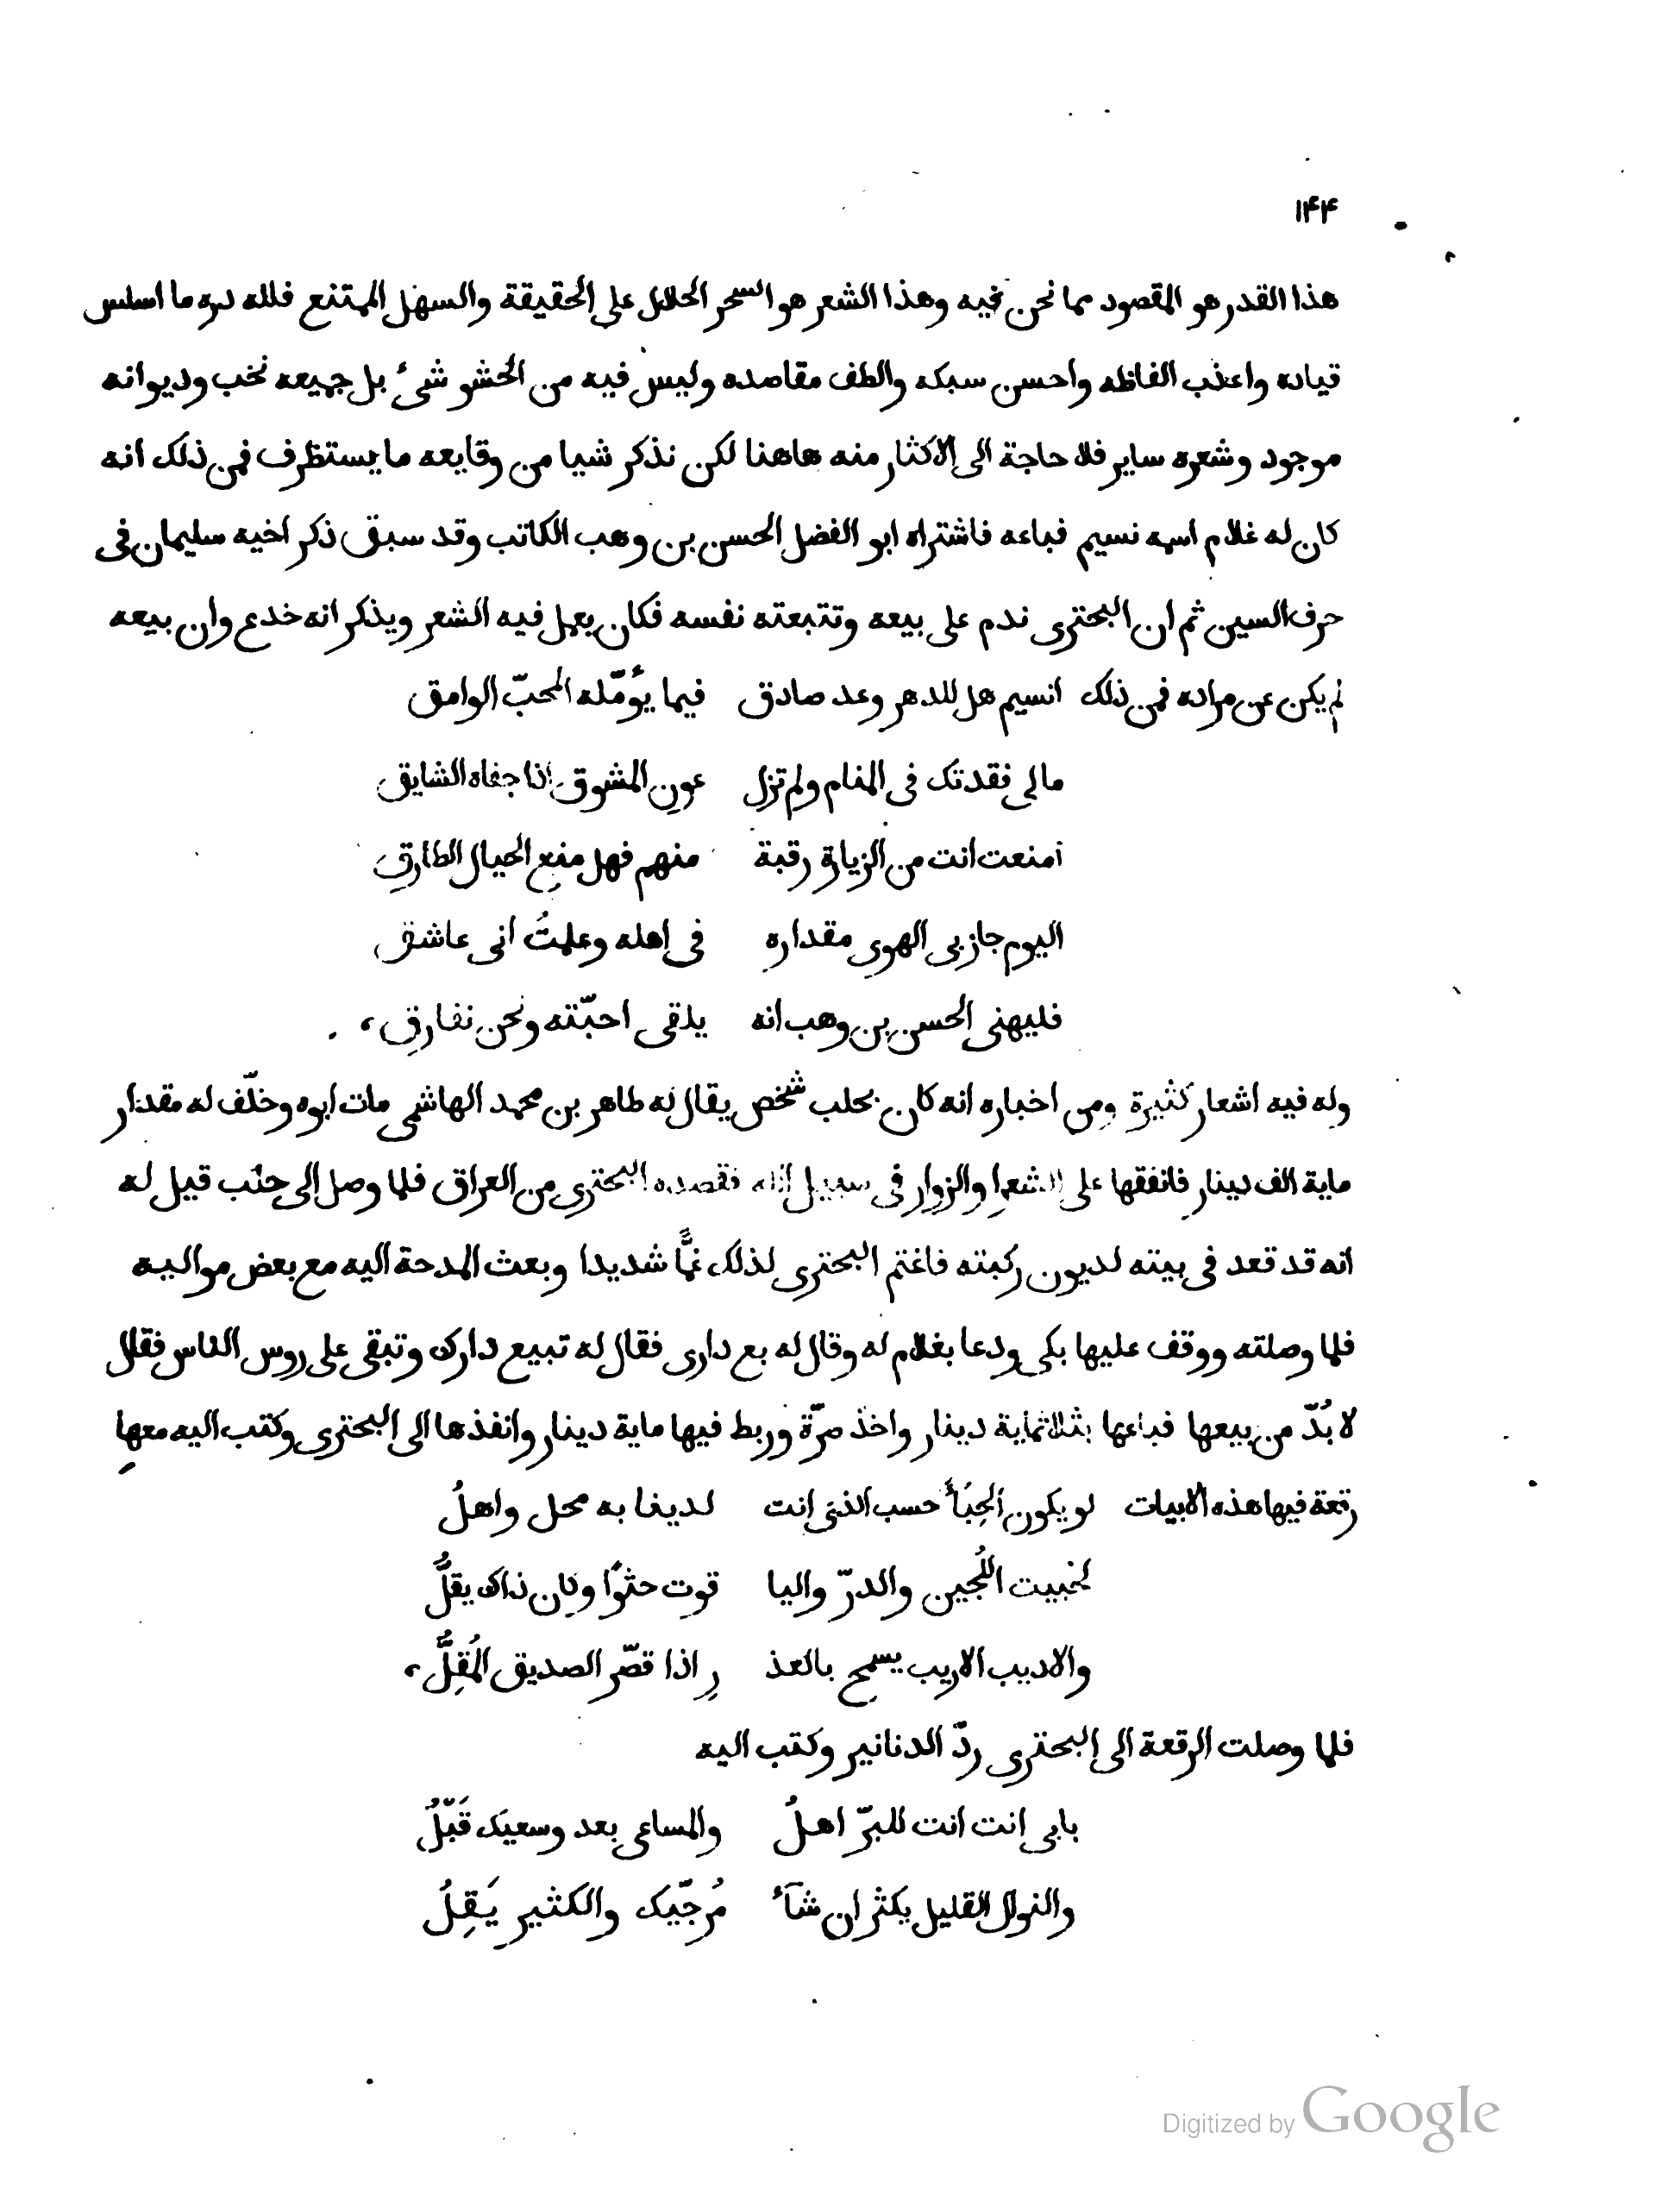 ١۴۴
هذا القدر هو المقصود مما نحن فيه وهذا الشعر هو السحر الحلال على الحقيقة والسهل الممتنع فلله دره ما اسلس
قياده واعذب الفاظه واحسن سبكه والطف مقاصده وليس فيه من الحشو شىء بل جميعه نخب وديوانه
موجود وشعره ساير فلا حاجة الى الاكثار منه هاهنا لكن نذكر شيا من وقايعه ما يستظرف فمن ذلك انه
كان له غلام اسمه نسيم فباعه فاشتراه ابو الفضل الحسن بن وهب الكاتب وقد سبق ذكر اخيه سليمان فى
حرف السين ثم ان البحترى ندم على بيعه وتتبعته نفسه فكان يعمل فيه الشعر ويذكر انه خدع وان بيعه
لم يكن عن مراده فمن ذلك انسيم هل للدهر وعد صادق فيما يؤمّله المحبّ الوامق
مالى فقدتك فى المنام ولم تزل عون المشوق اذا جفاه الشايق
امنعت انت من الزيارة رقبة منهم فهل منع الخيال الطارق
اليوم جاز بى الهوى مقداره فى اهله وعلمتُ انى عاشق
فليهنى الحسن بن وهب انه يلقى احبّته ونحن نفارق
وله فيه اشعار كثيرة ومن اخباره انه كان بحلب شخص يقال له طاهر بن محمد الهاشمى مات ابوه وخلّف له مقدار
ماية الف دينار فانفقها على الشعرا والزوار فى سبيل الله فقصده البحترى من العراق فلما وصل الى حلب قيل له
انه قد قعد فى بيته لديون ركبته فاغتم البحترى لذلك غمًّا شديدا وبعث المدحة اليه مع بعض مواليه
فلما وصلته ووقف عليها بكى ودعا بغلام له وقال له بع دارى فقال له تبيع دارك وتبقى على روس الناس فقال
لا بُدّ من بيعها فباعها بثلاثماية دينار واخذ صرّة وربط فيها ماية دينار وانفذها الى البحترى وكتب اليه معها
رقعة فيها هذه الابيات لو يكون الحِبَأُ حسب الذى انت لدينا به محل واهلُ
لحبيت اللُجين والدرّ واليا قوت حثوًا وكان ذاك يقلُّ
والاديب الاريب يسمح بالعذ رِ اذا قصّر الصديق المُقِلُّ
فلما وصلت الرقعة الى البحترى ردّ الدنانير وكتب اليه
بابى انت انت للبرّ اهلُ والمساعى بعد وسعيك قَبّلُ
والنوال القليل يكثر ان شآء مُرجّيك والكثير يَقِلُ
Digitized by Google